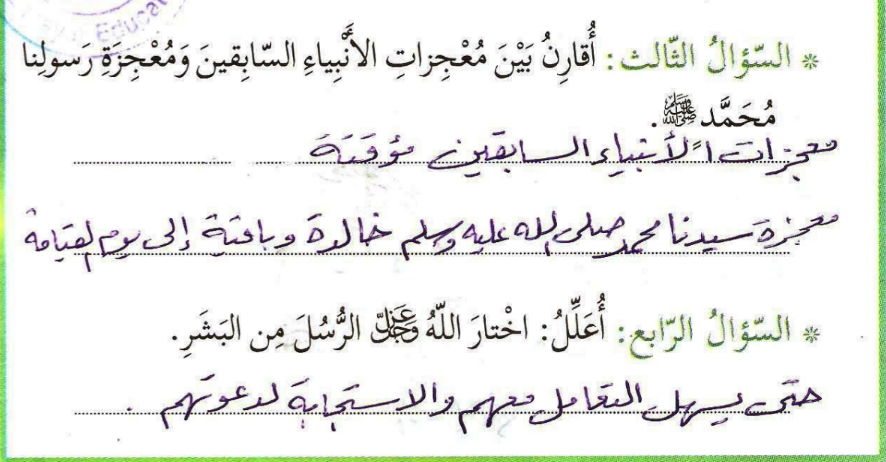 Educa
* السّؤالُ الثّالث: أُقارِنُ بَيْنَ مُعْجِزاتِ الأَنْبِياءِ السّابِقينَ وَمُعْجِزَةِ رَسولِنا
مُحَمَّد ﷺ.
معجزات الأنبياء السابقين مؤقتة
معجزة سيدنا محمد صلى الله عليه وسلم خالدة وباقية إلى يوم القيامة
* السّؤالُ الرّابع: أُعَلِّلُ: اخْتارَ اللّهُ عَزَّ وَجَلَّ الرُّسُلَ مِن البَشَرِ.
حتى يسهل التعامل معهم والاستجابة لدعوتهم .